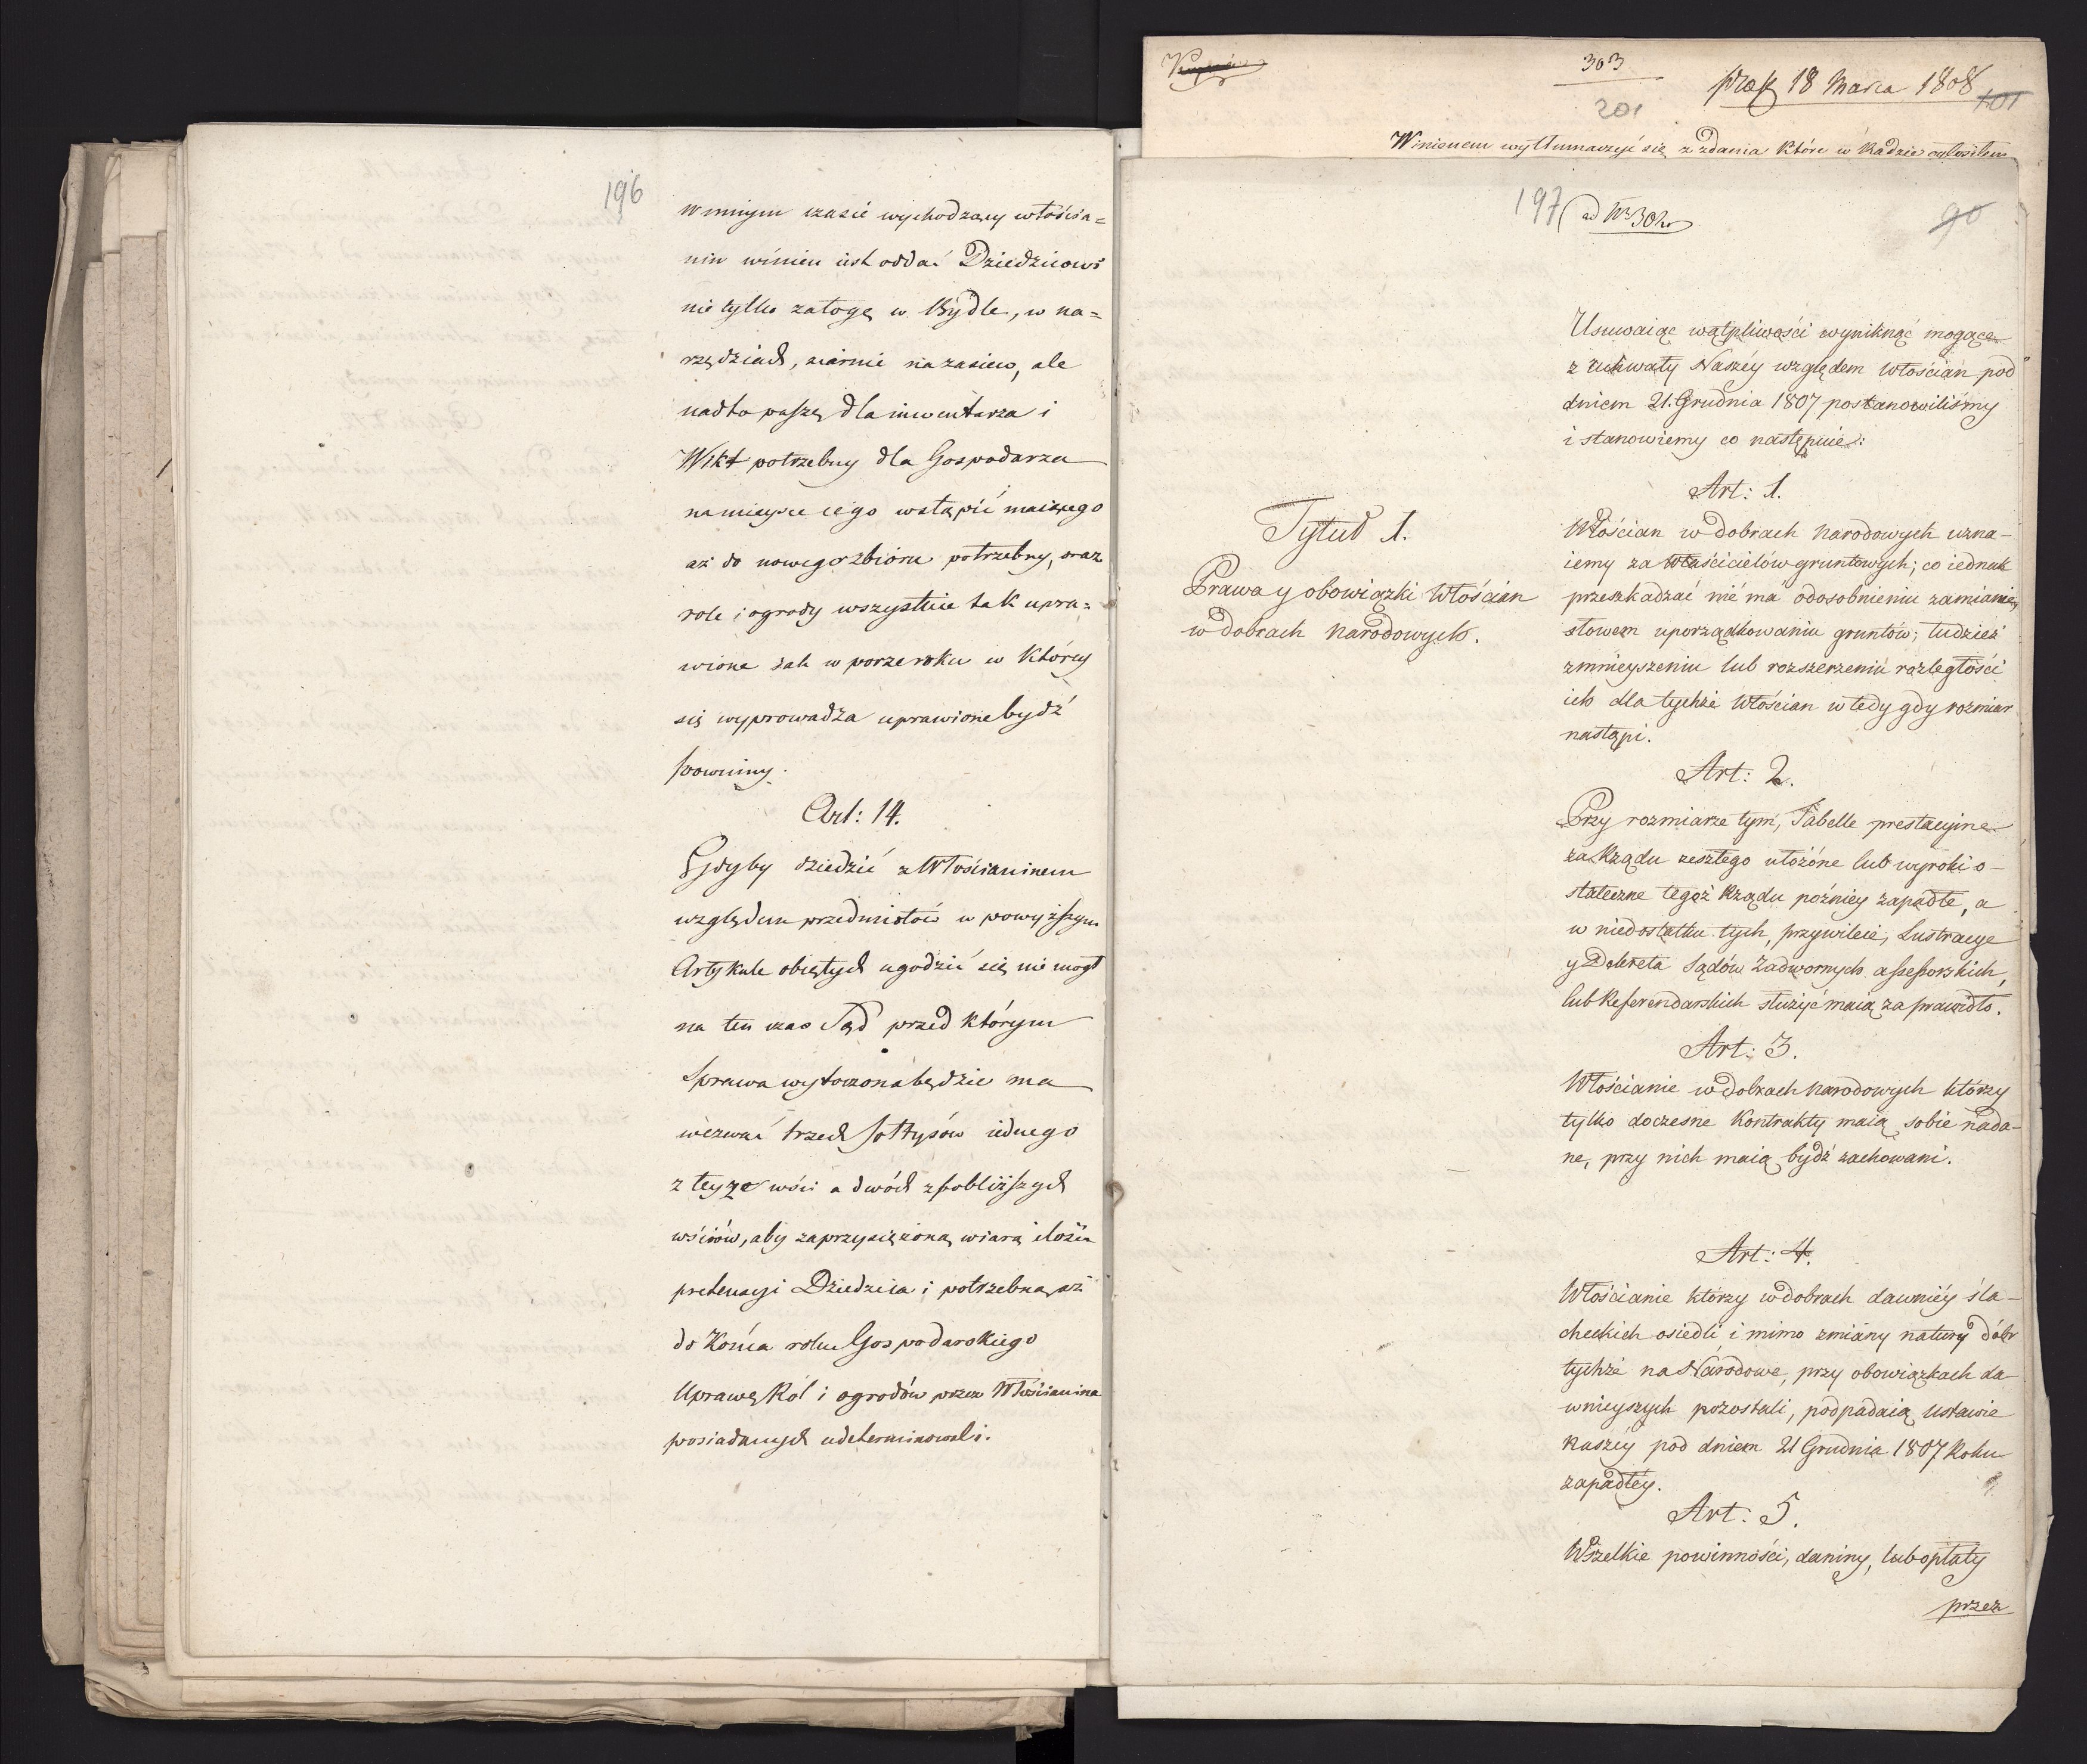 196
w innym czasie wychodzący włościa=
nin winien iest oddać Dziedzicowi
nie tylko załogę w Bydle, w na=
rzędziach, ziarnie na zasiew, ale
nadto paszę dla inwentarza i
Wikt potrzebny dla Gospodarza
na mieysce iego wstąpić maiącego
aż do nowego zbioru potrzebny, oraz
role i ogrody wszystkie tak upra=
wione iak w porze roku w który
się wyprowadza uprawione bydź
powinny.
Art: 14.
Gdyby dziedzic z Włościaninem
względem przedmiotów w powyższym
Artykule obiętych ugodzić się nie mogł
na ten czas Sąd przed którym
sprawa wytoczona będzie ma
wezwać trzech sołtysów iednego
z teyże wsi a dwóch z pobliższych
wsiów, aby zaprzysiężoną wiarą ilość
pretensyi Dziedzica i potrzebną aż
do Końca roku Gospodarskiego
Uprawę Ról i ogrodów przez Włościanina
posiadanych udeterminowali.
303
201
præs 18 Marca 1808
101
Winienem wytłumaczyć się z zdania które w Radzie ogłosiłem
197
ad Nr 302
90
Usuwaiąc wątpliwości wyniknąć mogące
z uchwały Naszéy względem Włościan pod
dniem 21. Grudnia 1807 postanowiliśmy
i stanowiemy co następuie:
Tytuł 1.
Prawa y obowiązki Włościan
w dobrach narodowych.
Art: 1.
Włościan w dobrach narodowych uzna-
iemy za właścicielów gruntowych; co iednak
przeszkadzać nié ma odosobnieniu zamianie,
słowem uporządkowaniu gruntów; tudzież
zmnieyszeniu lub rozszerzeniu rozległości
ich dla tychże Włościan w tedy gdy rozmiar
nastąpi.
Art: 2.
Przy rozmiarze tym, Tabelle prestacyine
za Rządu zeszłego ułożóne lub wyroki o-
stateczne tegoż Rządu poźniey zapadłe, a
w niedostatku tych, przywileie, Lustracye
y Dekreta Sądów Zadwornych assessorskich,
lub Referendarskich służyć maią za prawidło.
Art: 3.
Włościanie w dobrach narodowych którzy
tylko doczesne Kontrakty maią sobie nada-
ne, przy nich maią bydź zachowani.
Art: 4.
Włościanie którzy w dobrach dawniéy śla-
checkich osiedli i mimo zmiány natury dóbr
tychże na Narodowe, przy obowiązkach da-
wnieyszych pozostali, podpadaią Ustawie
naszéy pod dniem 21 Grudnia 1807 Roku
zapadłéy.
Art: 5.
Wszelkie powinności, daniny, lub opłaty
przez